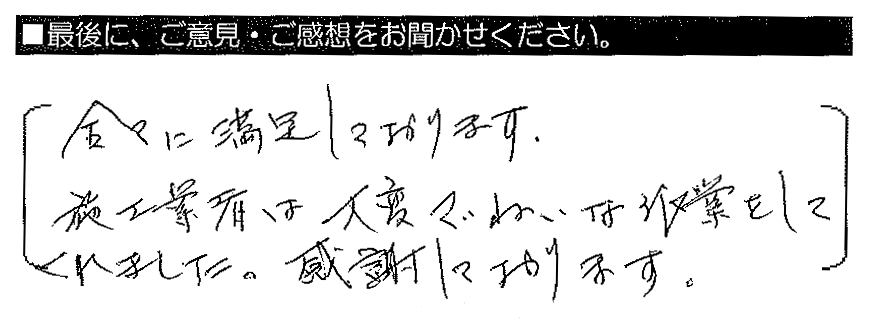 ■最後に、ご意見・ご感想をお聞かせください。
合々に満足しております.
施工業者は大変でいねいな作業をして
くれました。感謝しております。